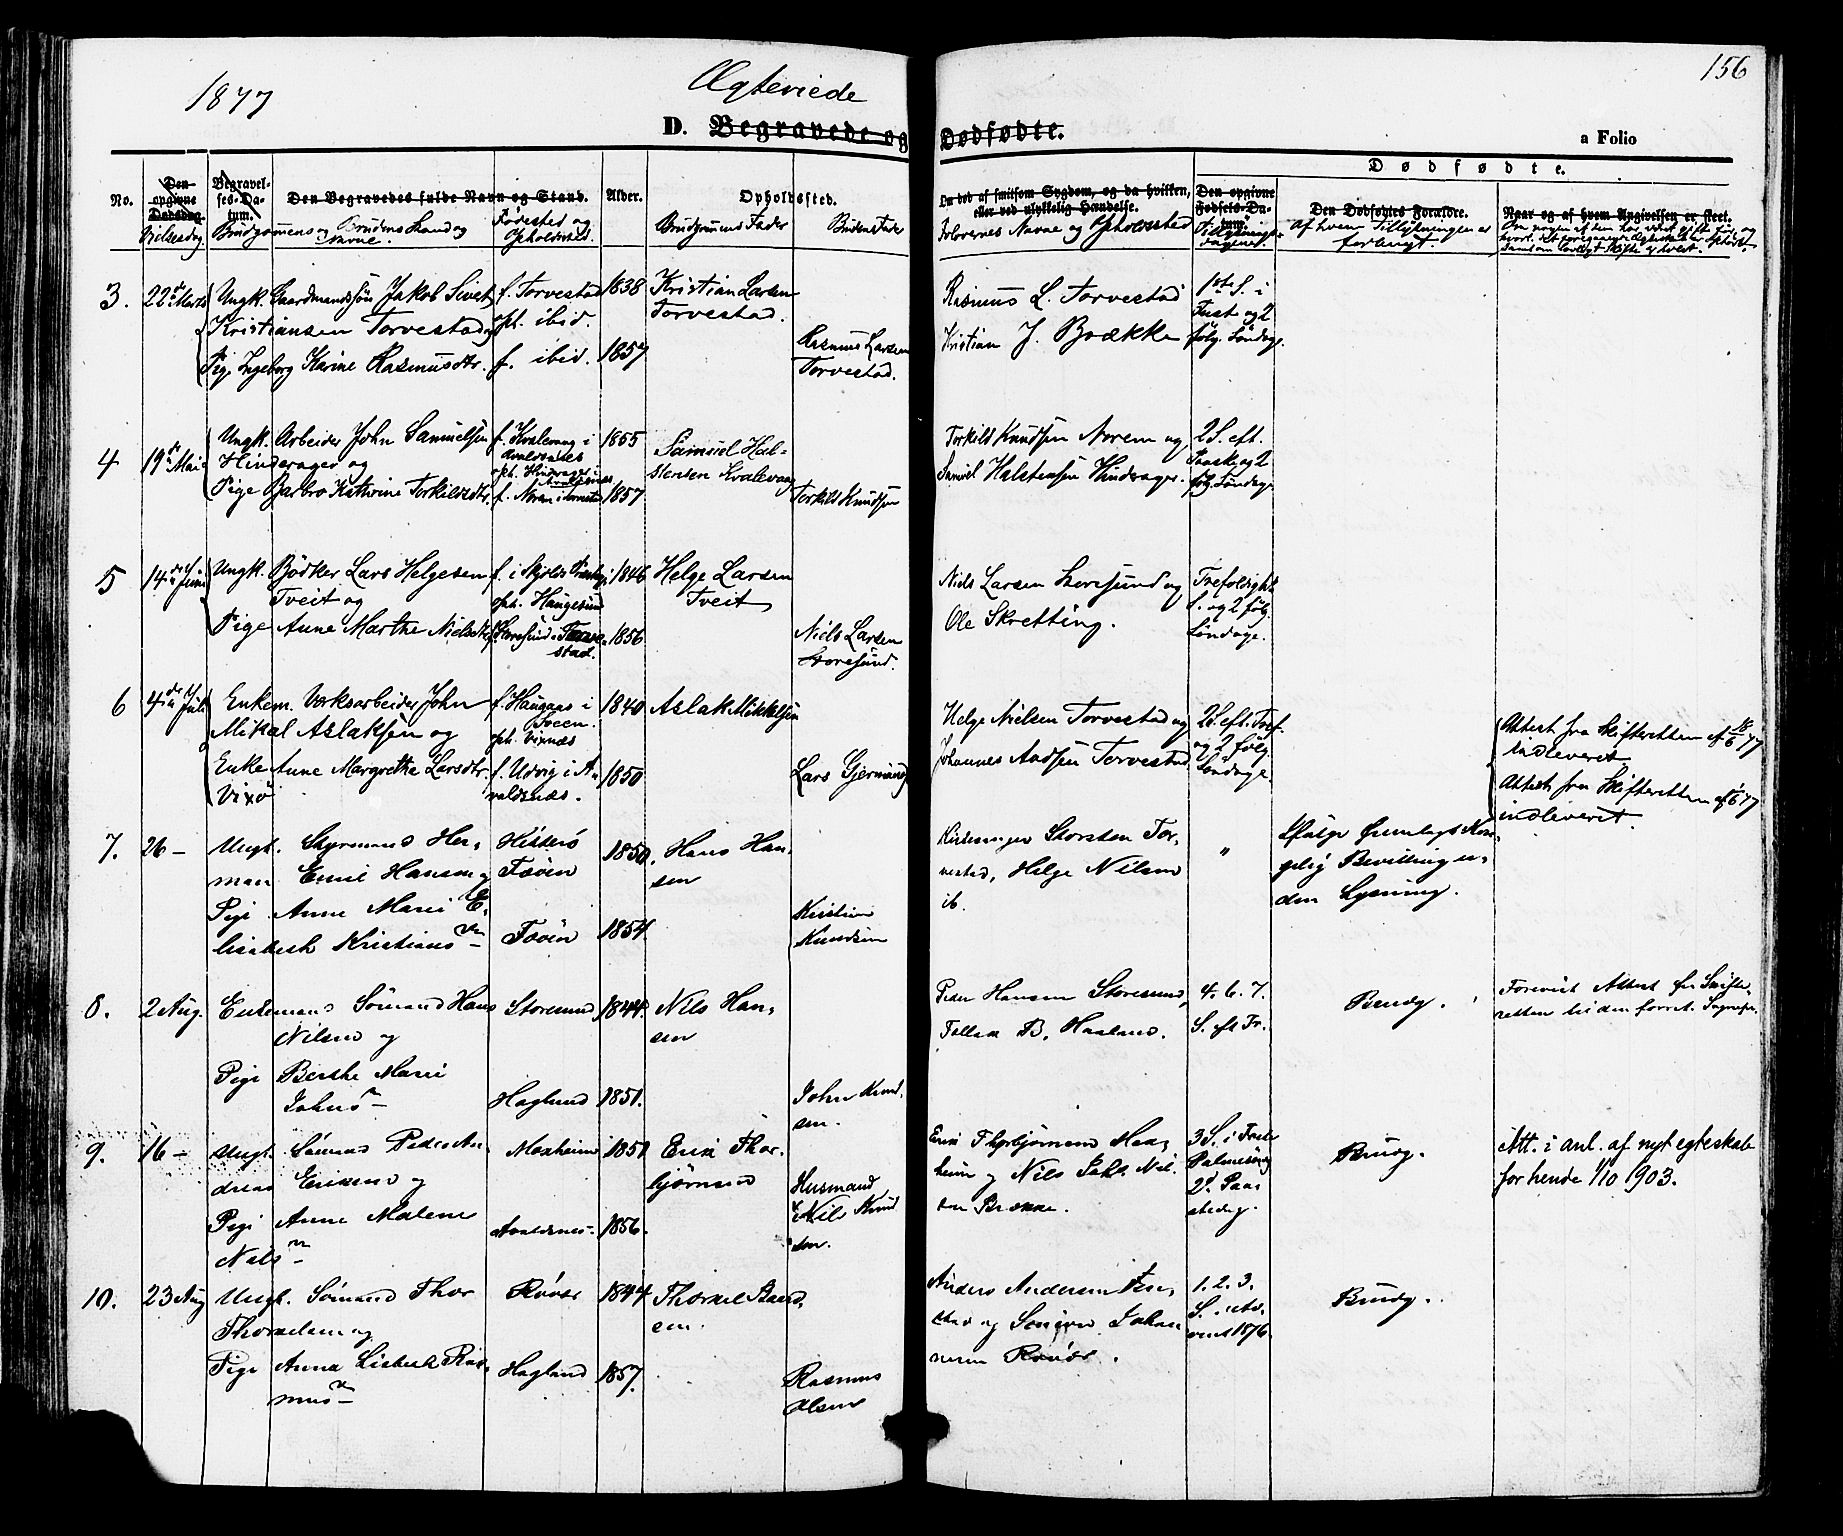 1877
Ægteviede
156
D. Begravede og Dødfødte.
a Folio
Dødfødte.
No.
Den opgivne Dødsdag.
Vielsesdag
Begravelses-Datum.
Den Begravedes fulde Navn og Stand.
Brudgommens og Brudens Stand og Navne.
Fødested og Opholdssted.
Alder.
Opholdssted.
Brudgommens Fader
Brudens Fader
Om død af smitsom Sygdom, og da hvilken, eller ved ulykkelig Hændelse.
Forlovernes Navne og Opholdssted
Den opgivne Fødsels-Datum.
Tillysnings-dagene.
Den Dødfødtes Forældre.
Af hvem Tillysningen er forlangt
Naar og af hvem Angivelsen er skeet.
3.
22de Marts
Ungk. Gaardmandssøn Jakob Sivert
Kristiansen Torvestad og
Pig. Ingeborg Karine Rasmusdtr.
f. Torvestad
oph. ibid.
f. ibid.
1838
1857
Kristian Larsen
Torvestad.
Rasmus Larsen
Torvestad.
Rasmus L. Torvestad
Kristian J. Boække
1ste S. i
Fast. og 2
følg. Søndage.
4
19de Mai
Ungk. Arbeider John Samuelsen
Hinderager og
Pige Barbro Kathrine Torkildsdtr.
f. Kvalevaag i
Avaldsnes
oph. Hinderager i
Avaldsnes
f. Norem i Torvestad
1855
1857
Samuel Hal-
stensen Kvalevaag
Torkild Knudsen
Torkild Knudsen Norem og
Samuel Halstensen Hinderager.
2 S. eft.
Paaske og 2
følg. Søndage
5
14de Juni
Ungk. Bödker Lars Helgesen
Tveit og
Pige Anne Marthe Nielsdtr.
f. i Skjolds Præstegj.
oph. Haugesund
f. Storesund i Torve-
stad.
1846
1856
Helge Larsen
Tveit
Niels Larsen
Storesund.
Niels Larsen Storesund og
Ole Skretting.
Trefoldigh.
S. og 2 følg.
Søndage.
6
4de Juli
Enkem. Værksarbeider John
Mikal Aslaksen og
Enke Anne Margrethe Larsdtr.
Vixö
f. Haugaas i
Sveen.
oph. Vixnæs
f. Udvig i A-
valdsnæs.
1840
1850
Aslak Mikkelsen
Lars Gjermunds
Helge Nielsen Torvestad og
Johannes Aadsen Torvestad
2 S. eft. Tref.
og 2 følg.
Söndage
Attest fra Skifteretten af 18/6 77
indleveret
Attest fra Skifteretten af 1/6 77
indleveret.
7.
26 —
Ungk. Styrmand Her-
man Emil Hansen og
Pige Anne Marie E-
lisabeth Kristians dtr
Hitterö
Føöen
Føöen
1850.
1854.
Hans Han-
sen
Kristian
Knudsen
Kirkesanger Storsten Tor-
vestad, Helge Nilsen
ib.
"
Ifølge Øvrighets Kon-
gelig Bevilling u-
den Lysning.
8.
2 Aug.
Enkemand Sömand Hans
Nilsen og
Pige Berthe Marie
Johns dtr
Storesund
Haglund
1844.
1851.
Nils Han-
sen
John Knud-
sen.
Peder Hansen Storesund,
Tollak B. Haaland.
4. 6. 7.
S. eft Tr.
Brudg.
Forevist Attest fra Skifte-
retten til den forret. Sognepr.
9.
16 —
Ungk. Sömand Peder An-
dreas Eriksen og
Pige Anne Malene
Nils dtr
Moxheim
Avaldsnes.
1851
1856.
Erik Thor-
bjørnsen
Husmand
Nils Knud
sen.
Erik Thorbjørnsen Mox-
heim og Nils Nil-
sen Brække.
3 S. i Faste
Palmesøndag
2 d. Paa-
skedag.
Brudg.
Att. i anl. af nyt egteskab
for hende 1/10 1903.
10.
23 Aug
Ungk. Sömand Thor
Thorkelsen og
Pige Anna Lisbeth Ras-
mus dtr
Rövær
Hagland
1844
1857.
Thorkel Baard-
sen.
Rasmus
Olsen
Anders Andersen
stad og Johan
nesen Rövær.
1. 2. 3.
S. i Ad-
vent 1876.
Brudg.